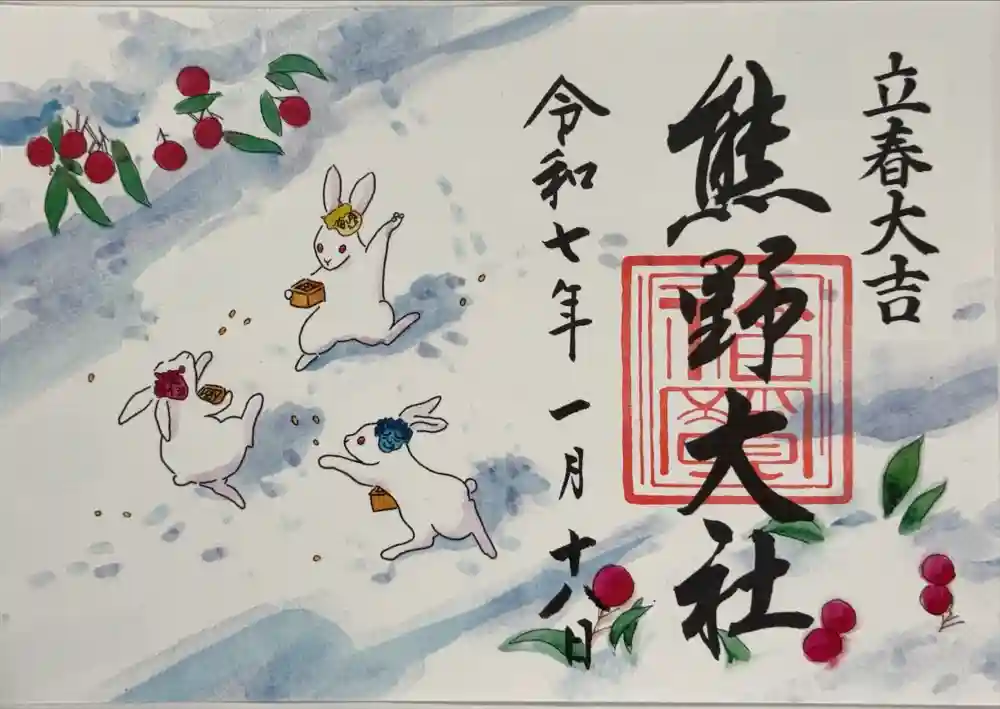 立春大吉
熊野大社
令和七年一月十八日